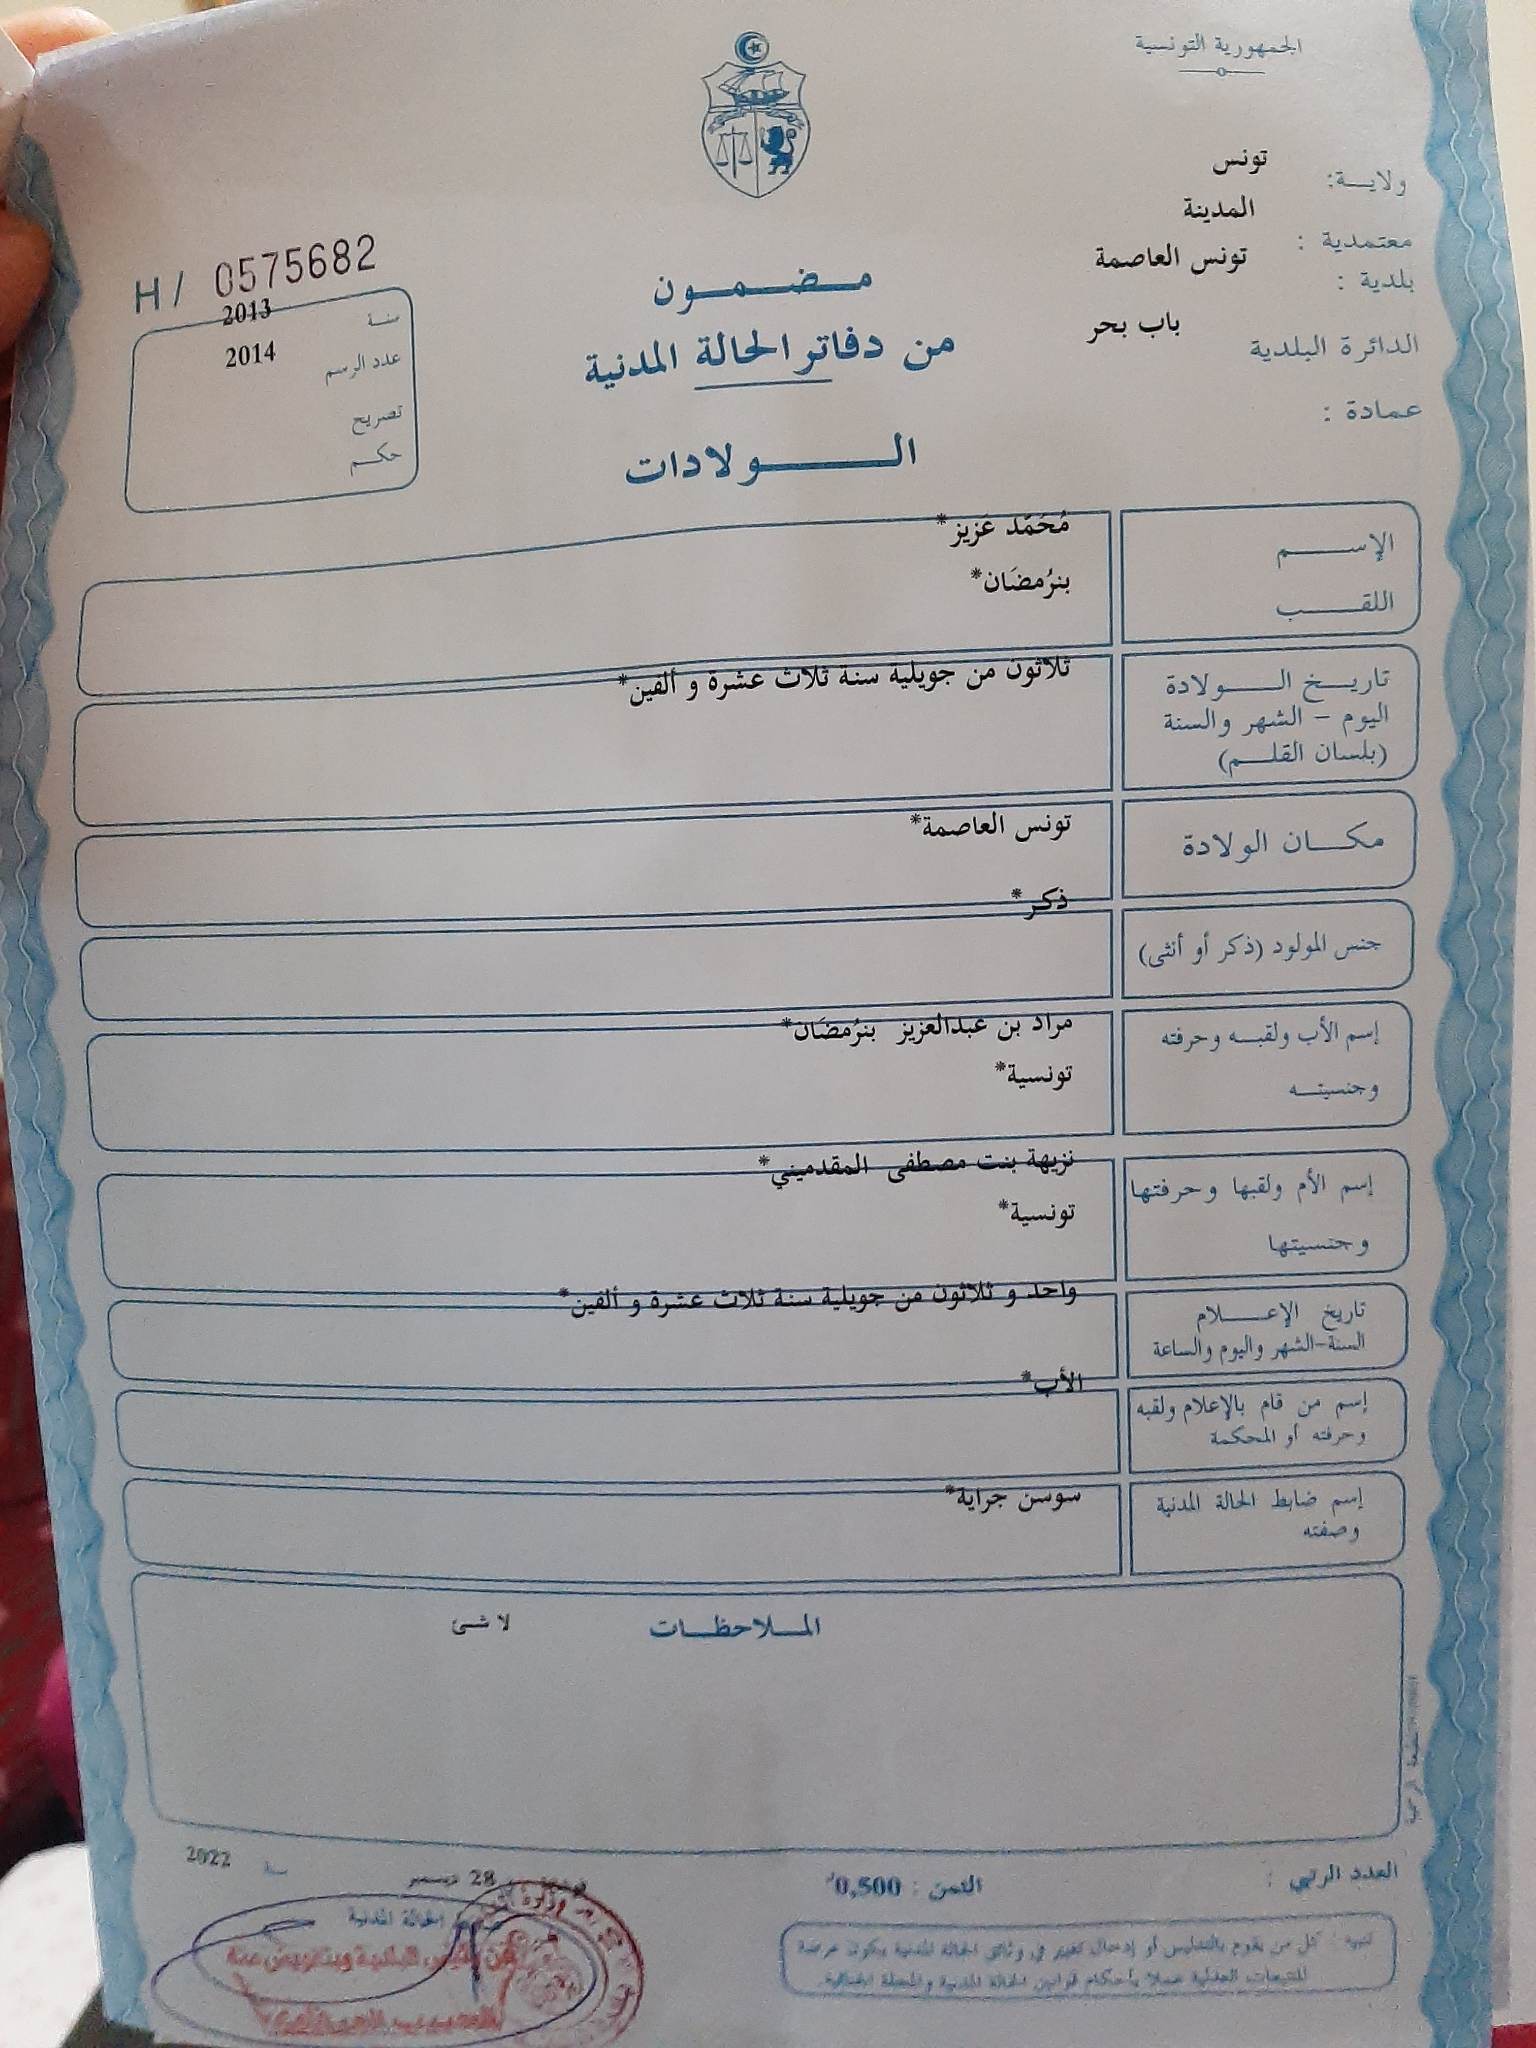 الجمهورية التونسية
ولايـــة: تونس
معتمدية : المدينة
بلدية : تونس العاصمة
الدائرة البلدية باب بحر
عمادة :
مـضـمـون
من دفاتر الحالة المدنية
الـــولادات
H/ 0575682
سنة 2013
عدد الرسم 2014
تصريح
حكم
الإســـم مُحَمّد عَزيز*
اللقـــب بنرُمضَان*
تاريـــخ الـــولادة ثلاثون من جويلية سنة ثلاث عشرة و ألفين*
اليوم - الشهر والسنة
(بلسان القلـــم)
مكـــان الولادة تونس العاصمة*
جنس المولود (ذكر أو أنثى) ذكر*
إسم الأب ولقبـــه وحرفته مراد بن عبدالعزيز بنرُمضَان*
وجنسيتـــه تونسية*
إسم الأم ولقبها وحرفتها نزيهة بنت مصطفى المقدميني*
وجنسيتها تونسية*
تاريخ الإعـــلام واحد و ثلاثون من جويلية سنة ثلاث عشرة و ألفين*
السنة-الشهر واليوم والساعة
إسم من قام بالإعلام ولقبه الأب*
وحرفته أو المحكمة
إسم ضابط الحالة المدنية سوسن جراية*
وصفته
المـلاحظـات لا شئ
العدد الرتبي :
الثمن : 0,500د
28 ديسمبر 2022
الحالة المدنية
تنبيه : كل من يقوم بالتدليس أو إدخال تغيير في وثائق الحالة المدنية يكون عرضة
للتتبعات العدلية عملا بأحكام قوانين الحالة المدنية والمجلة الجنائية.